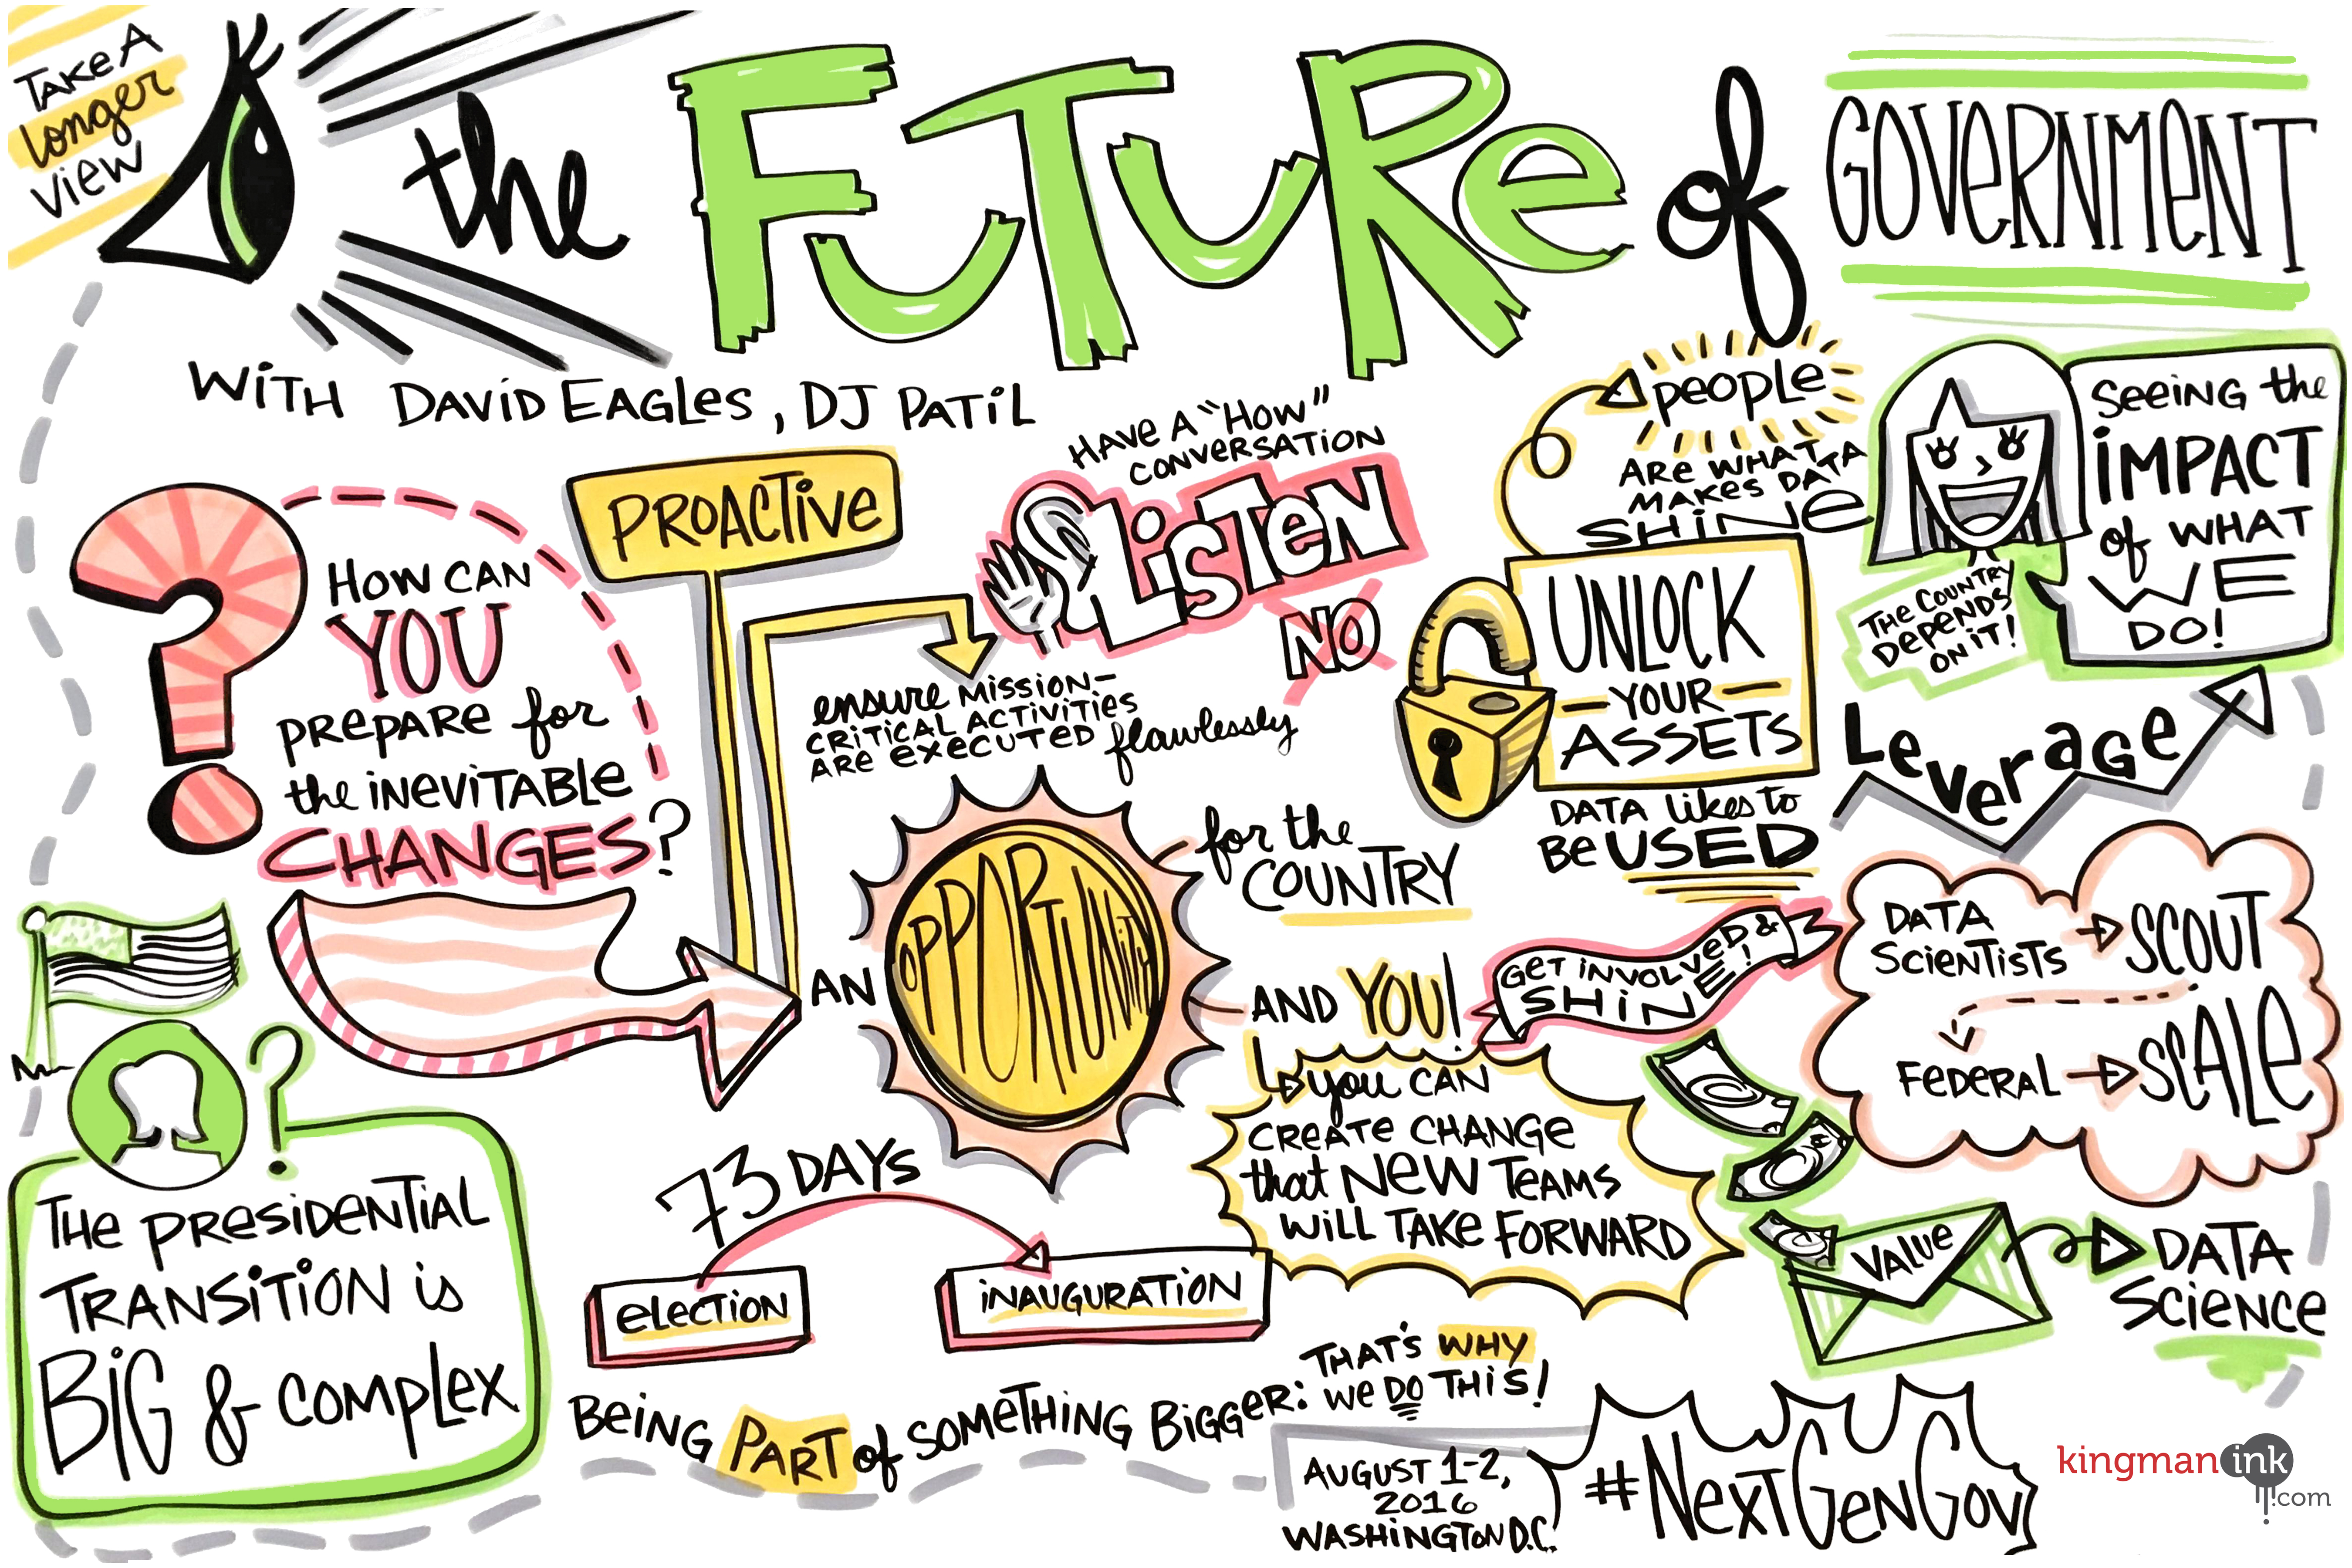 TAKE A
longer
view
the FUTURe of GOVeRNMeNT
WiTH DAViD EAGLes, DJ PATiL
HOW CAN
YOU
PRePARe for
the iNeViTABLe
CHANGES?
PROACTiVe
HAVe A "HOW"
CONVeRSATiON
LiSTeN
NO
ensure MiSSiON-
CRiTiCAL ACTiViTieS
ARe execUTeD flawlessly
people
ARe WHAT
MAKes DATA
SHiNe
UNLOCK
- YOUR -
ASSETS
DATA likes to
Be USED
SeeiNG the
iMPACT
of WHAT
WE
DO!
THe COUNTRY
DepeNDS
ON iT!
LeveRAGe
AN OPPORTUNiTY
for the
COUNTRY
AND YOU!
GeT iNVOLVeD &
SHiNE!
you CAN
CReATe CHANGe
that NeW TeAMS
WiLL TAKe FORWARD
DATA
SCieNTiSTS
SCOUT
FeDeRAL
SCALe
VALUe
DATA
SCieNCe
THe pReSiDeNTiAL
TRANSiTiON is
BiG & COMpLex
73 DAYs
eLecTiON
iNAUGURATiON
BeiNG PART of SOMeTHiNG BiGGeR:
THAT'S WHY
We DO THiS!
AUGUST 1-2,
2016
WASHiNGTON D.C.
#NexTGeNGov
kingman ink
.com